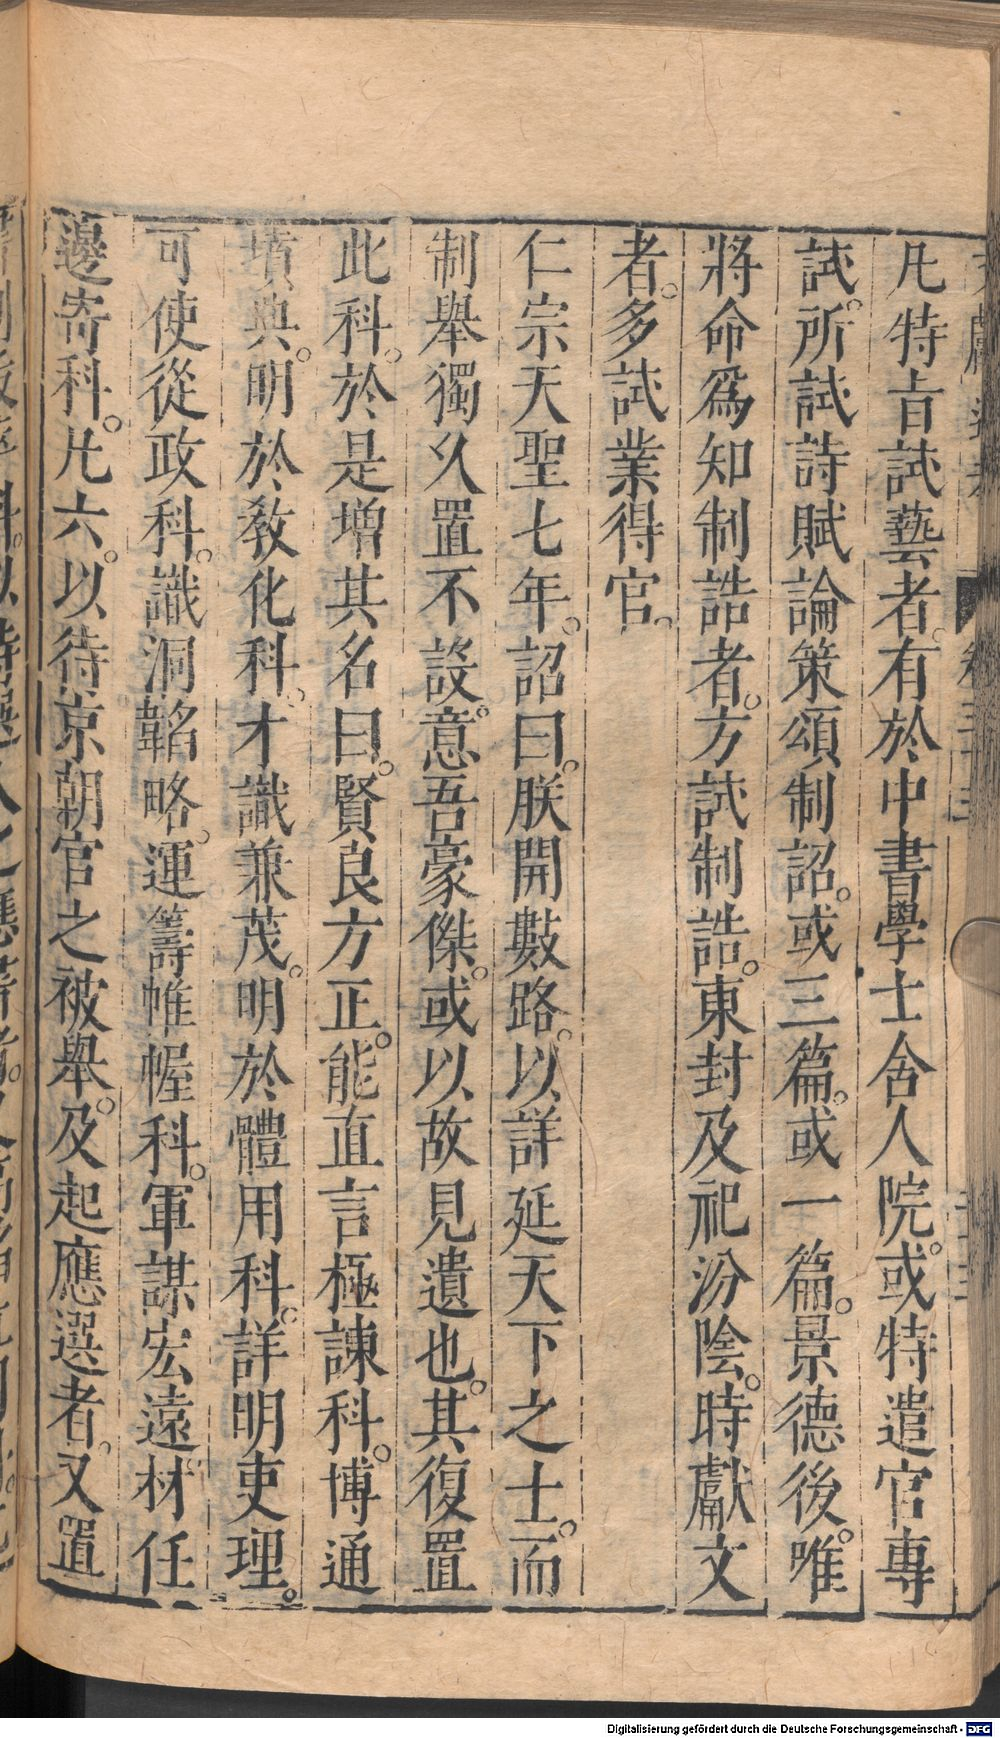 凡特旨試藝者。有於中書學士舍人院。或特遣官專
試。所試詩賦論策頌制詔。或三篇。或一篇。景德後。唯
將命爲知制誥者。方試制誥。東封及祀汾陰。時獻文
者。多試業得官。
仁宗天聖七年。詔曰。朕開數路。以詳延天下之士。而
制舉獨久置不設。意吾豪傑。或以故見遺也。其復置
此科。於是增其名曰。賢良方正。能直言極諫科。博通
墳典。明於教化科。才識兼茂。明於體用科。詳明吏理。
可使從政科。識洞韜略。運籌帷幄科。軍謀宏遠。材任
邊寄科。凡六。以待京朝官之被舉。及起應選者。又置
Digitalisierung gefördert durch die Deutsche Forschungsgemeinschaft - DFG